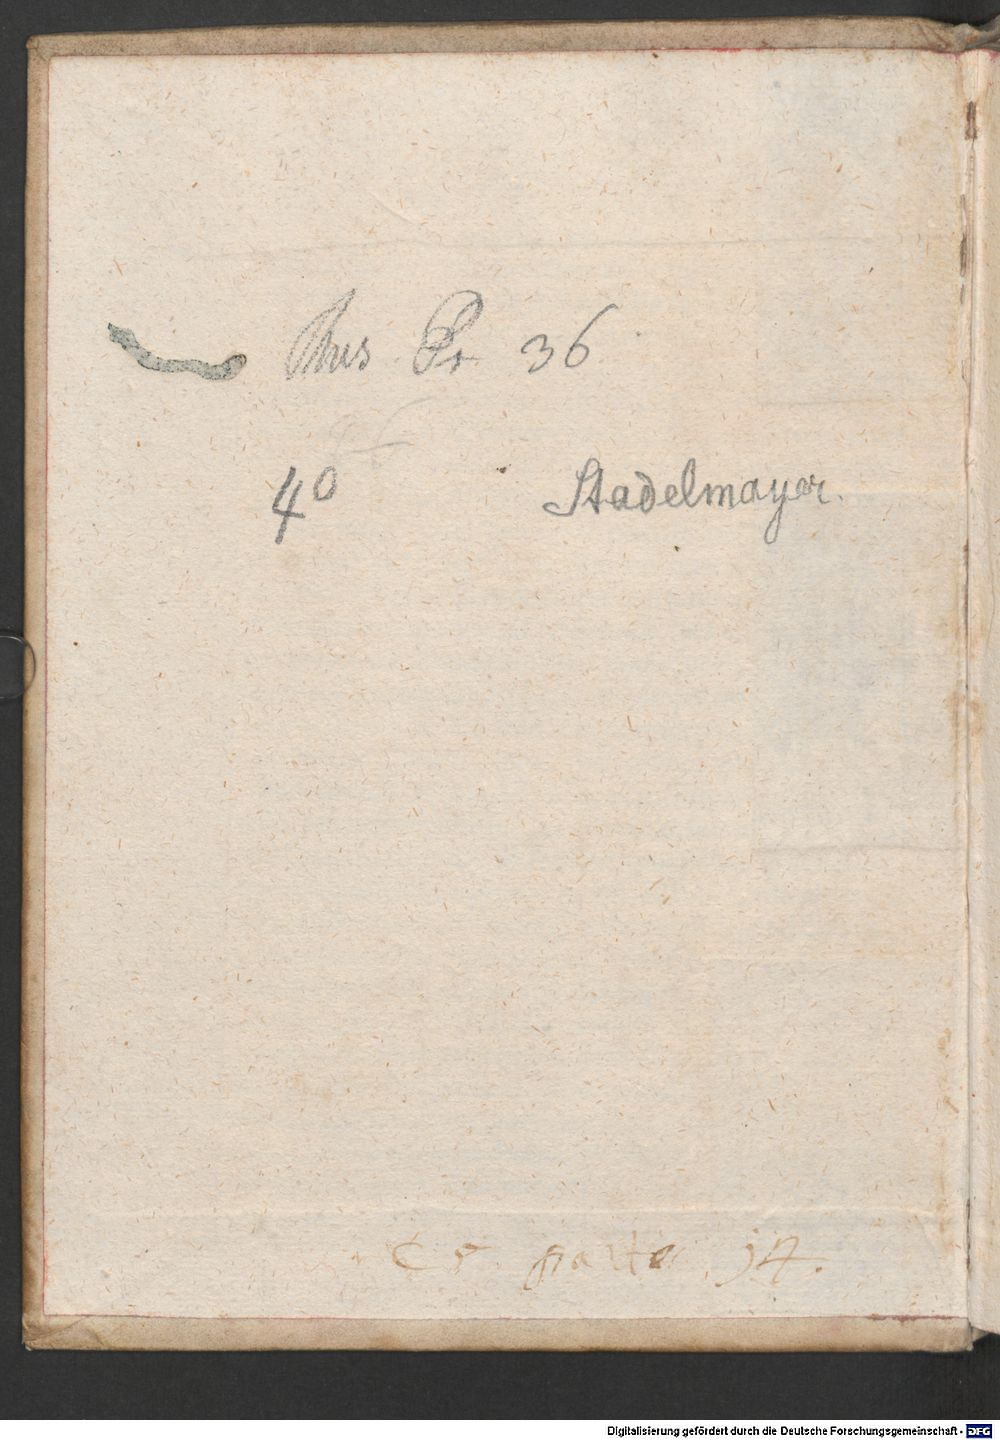 Mus. Pr. 36
4° Stadelmayer.
14.
Digitalisierung gefördert durch die Deutsche Forschungsgemeinschaft - DFG